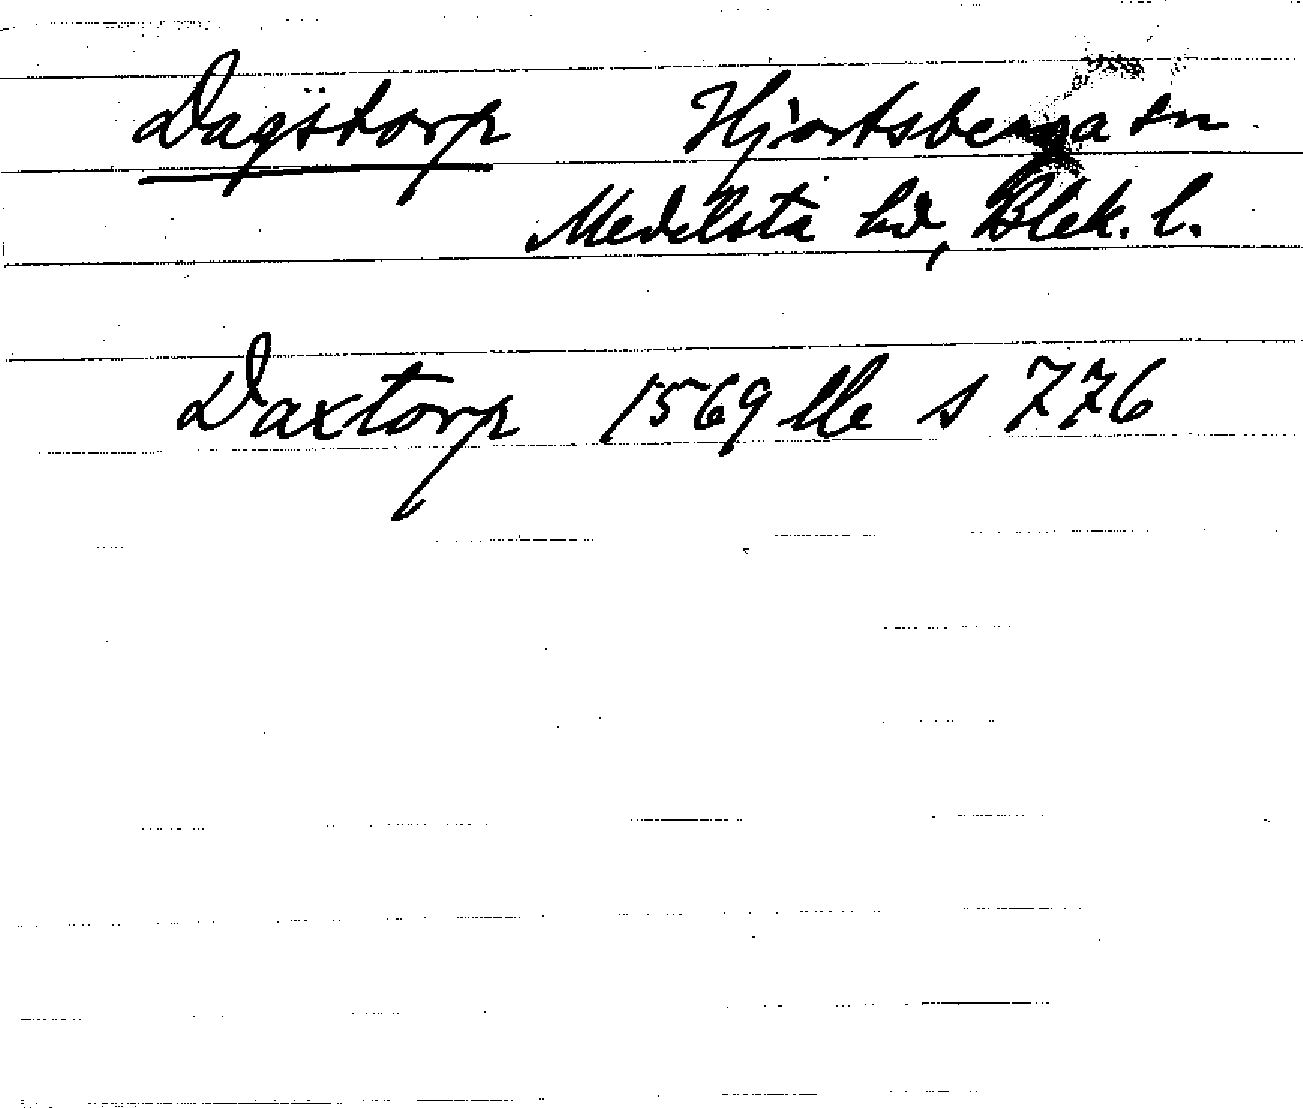 Dagstorp Hjortsberga sn
Medelsta hd, Blek. l.
Daxtorp 1569 s 776